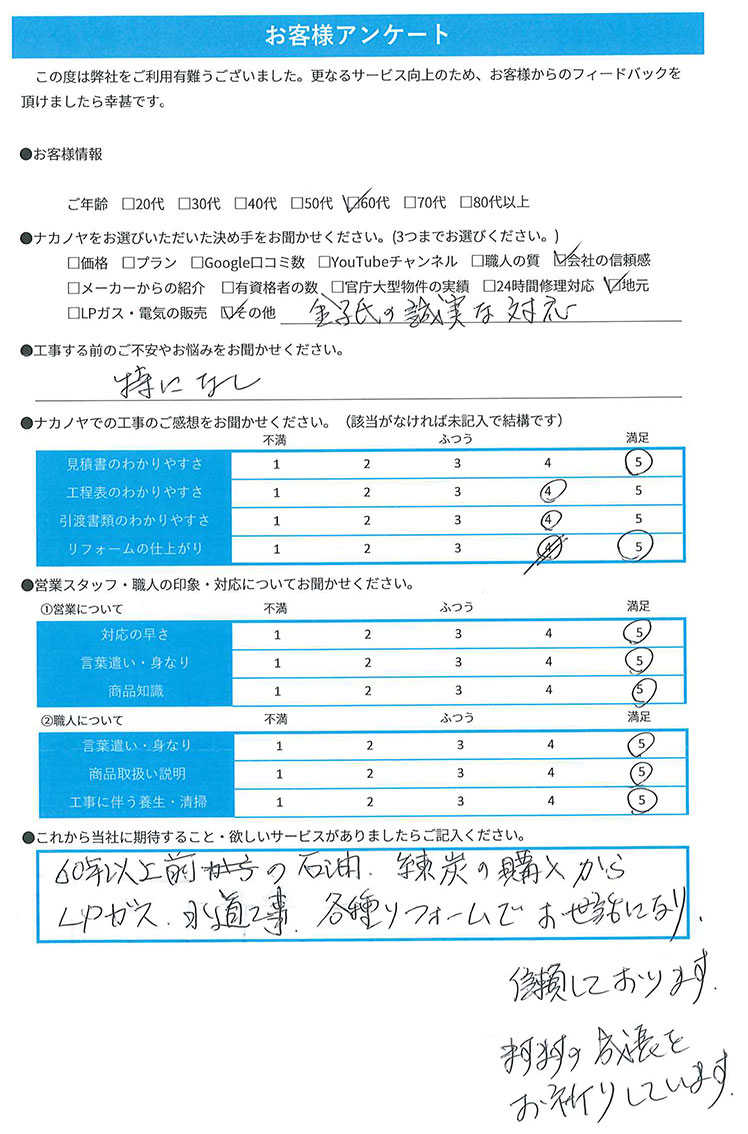 お客様アンケート
この度は弊社をご利用有難うございました。更なるサービス向上のため、お客様からのフィードバックを
頂けましたら幸甚です。
●お客様情報
ご年齢 □20代 □30代 □40代 □50代 ☑60代 □70代 □80代以上
●ナカノヤをお選びいただいた決め手をお聞かせください。(3つまでお選びください。)
□価格 □プラン □Google口コミ数 □YouTubeチャンネル □職人の質 ☑会社の信頼感
□メーカーからの紹介 □有資格者の数 □官庁大型物件の実績 □24時間修理対応 ☑地元
□LPガス・電気の販売 ☑その他 金子氏の誠実な対応
●工事する前のご不安やお悩みをお聞かせください。
特になし
●ナカノヤでの工事のご感想をお聞かせください。（該当がなければ未記入で結構です）
不満 ふつう 満足
見積書のわかりやすさ 1 2 3 4 5
工程表のわかりやすさ 1 2 3 4 5
引渡書類のわかりやすさ 1 2 3 4 5
リフォームの仕上がり 1 2 3 4 5
●営業スタッフ・職人の印象・対応についてお聞かせください。
①営業について 不満 ふつう 満足
対応の早さ 1 2 3 4 5
言葉遣い・身なり 1 2 3 4 5
商品知識 1 2 3 4 5
②職人について 不満 ふつう 満足
言葉遣い・身なり 1 2 3 4 5
商品取扱い説明 1 2 3 4 5
工事に伴う養生・清掃 1 2 3 4 5
●これから当社に期待すること・欲しいサービスがありましたらご記入ください。
60年以上前の石油、練炭の購入から
LPガス、水道工事、各種リフォームでお世話になり、
信頼しております。
ますますの成長を
お祈りしています。